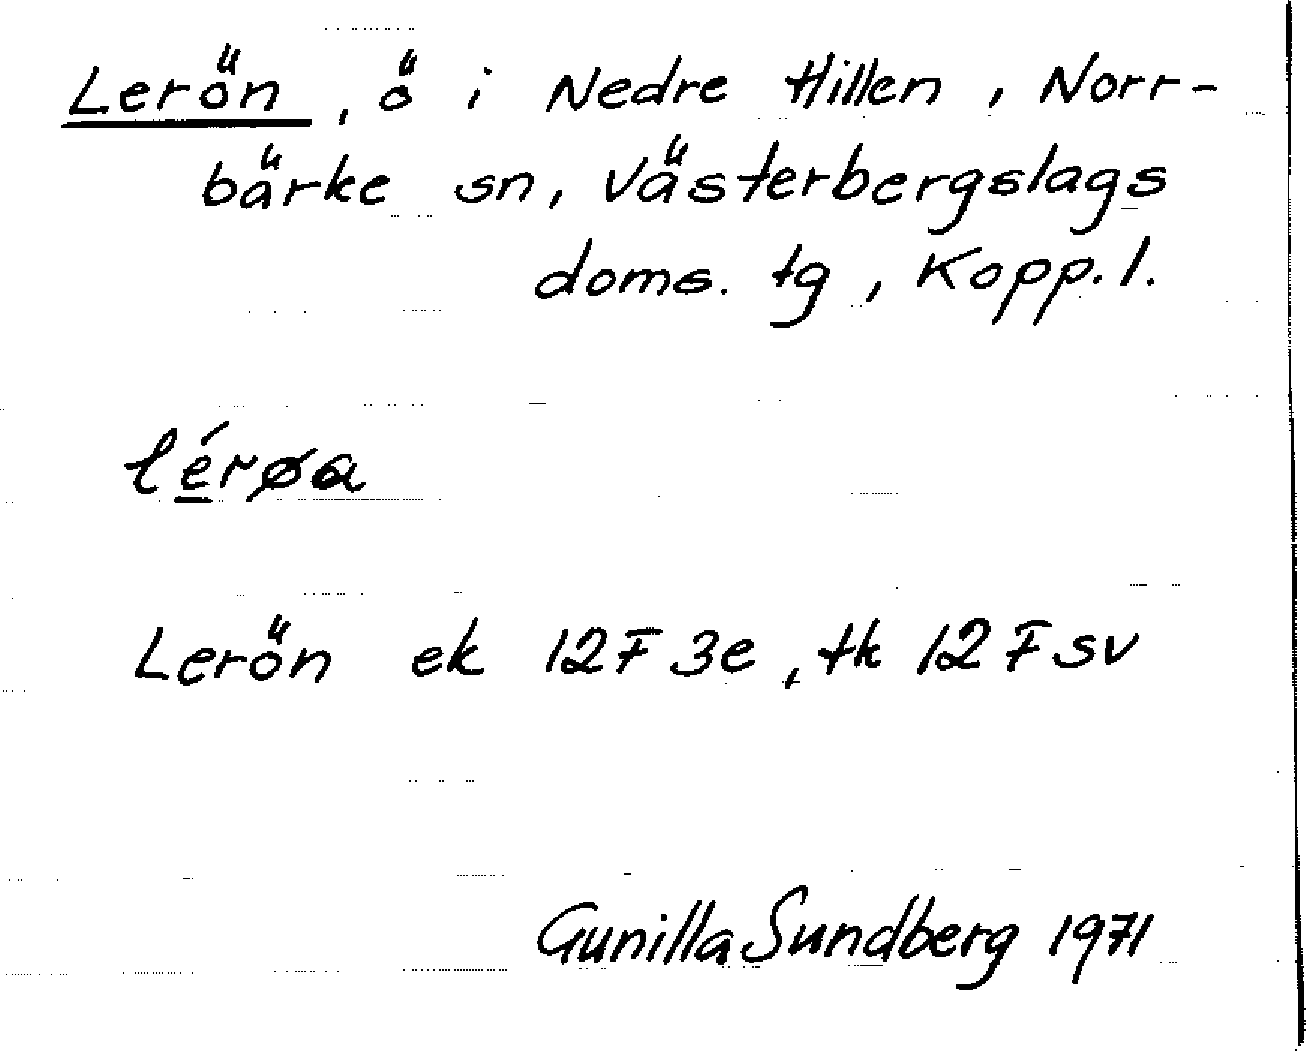 Lerön, ö i Nedre Hillen, Norr-
bärke sn, Västerbergslags
doms. tg, Kopp. l.
lé̱røa
Lerön ek 12F 3e, tk 12F SV
Gunilla Sundberg 1971